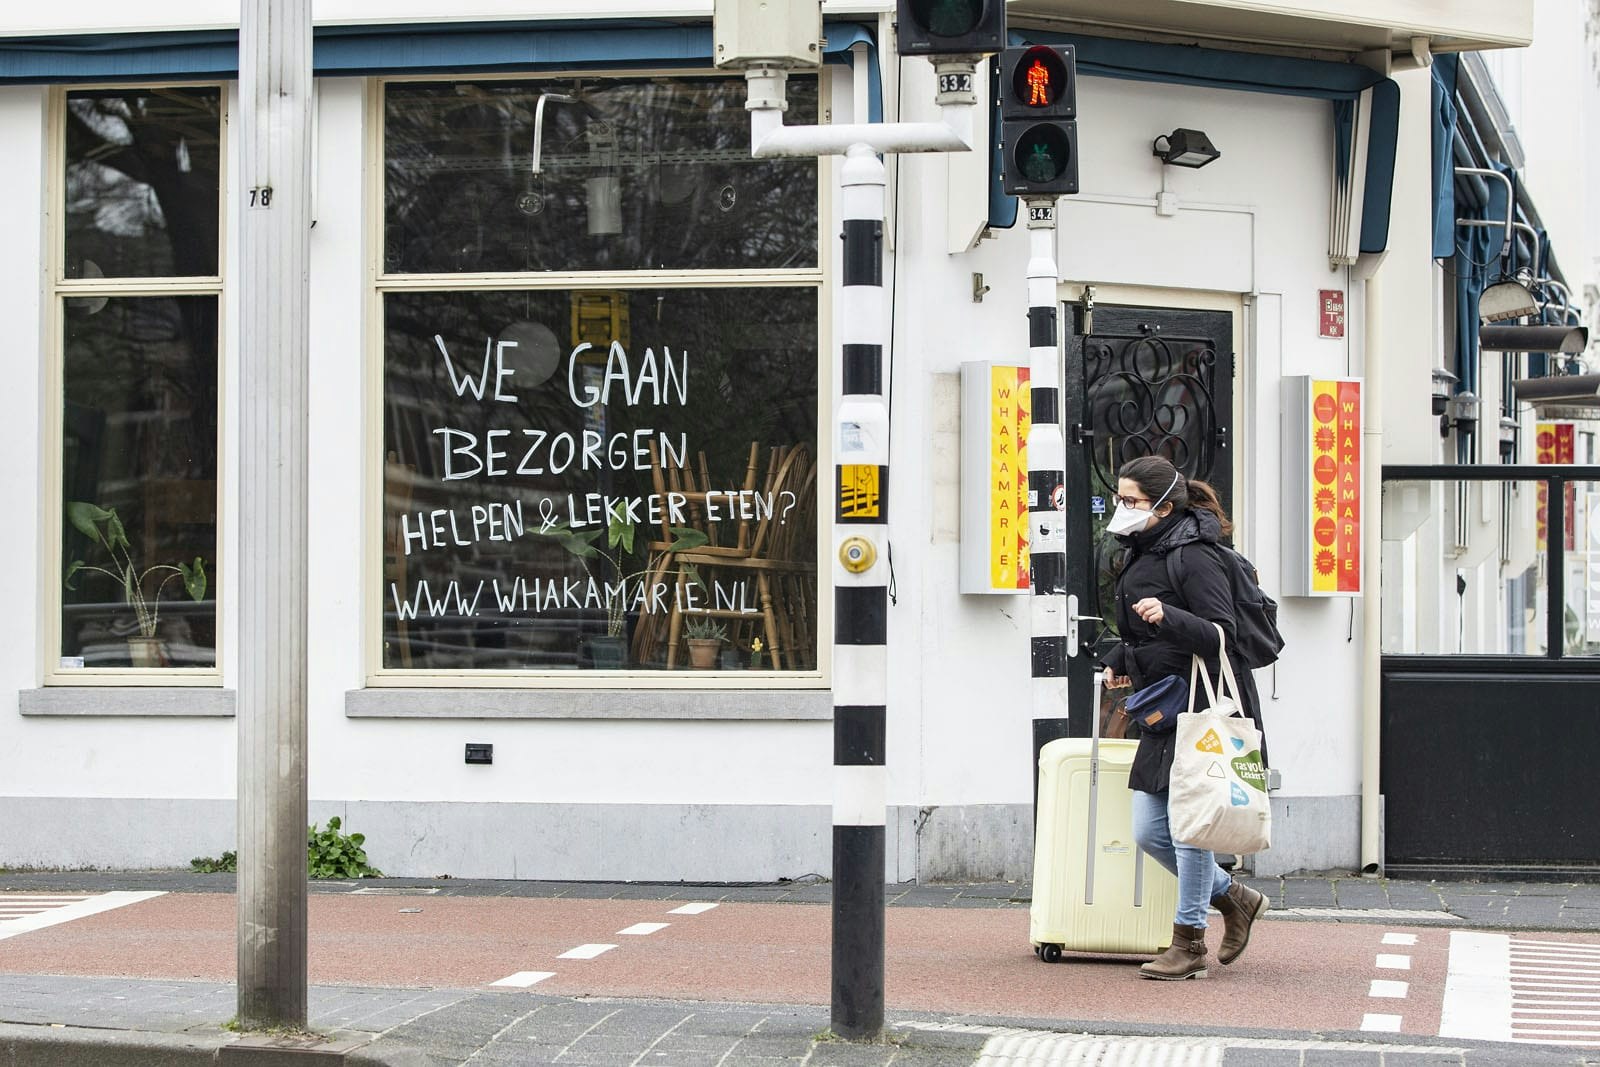 33.2
34.2
78
WE GAAN
BEZORGEN
HELPEN & LEKKER ETEN?
WWW.WHAKAMARIE.NL
WHAKAMARIE
WHAKAMARIE
Tas VOL
Lekkers